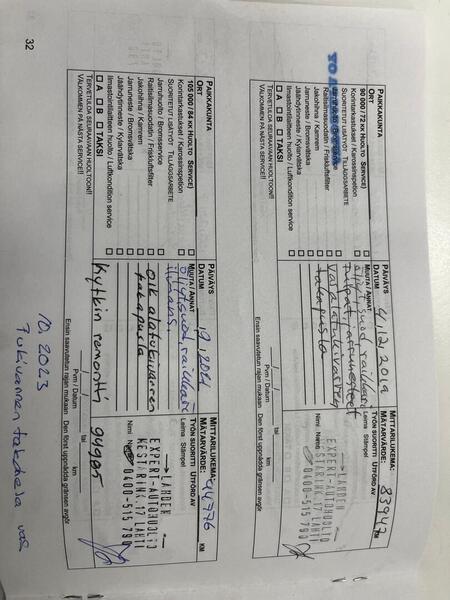 PAIKKAKUNTA
ORT
90 000 / 72 KK HUOLTO SERVICE)
Koritarkastukset / Karossinspetion
SUORITETUT LISÄTYÖT TILLÄGGSARBETE
Raitisilmasuodatin / Friskluftsfilter
Jakohihna / Kamrem
Jarruneste / Bromsvätska
Jäähdytinneste / Kylarvätska
Ilmastointilaitteen huolto / Luftkondition service
A B TAKSI
TERVETULOA SEURAAVAAN HUOLTOON!!
VÄLKOMMEN PÅ NÄSTA SERVICE!!
PÄIVÄYS
DATUM 4.12.2019
MUUTA / ANNAT
takapusla
Pvm / Datum
tai
km
Ensin saavutetun rajan mukaan Den först uppnådda gränsen avgör
MITTARILUKEMA:
MÄTARVÄRDE: 83947 KM
TYÖN SUORITTI UTFÖRD AV
Leima Stämpel
LAHDEN
EXPERT-AUTOHUOLTO
KESTARINK. 17 LAHTI
0400-515 790
Nimi Namn
PAIKKAKUNTA
ORT
105 000 / 84 KK HUOLTO SERVICE)
Koritarkastukset / Karossinspetion
SUORITETUT LISÄTYÖT TILLÄGGSARBETE
Jarruhuolto / Bromsservice
Raitisilmasuodatin / Friskluftsfilter
Jakohihna / Kamrem
Jarruneste / Bromsvätska
Jäähdytinneste / Kylarvätska
Ilmastointilaitteen huolto / Luftkondition service
A B TAKSI
TERVETULOA SEURAAVAAN HUOLTOON!!
VÄLKOMMEN PÅ NÄSTA SERVICE!!
PÄIVÄYS
DATUM
MUUTA / ANNAT
oik alatukivarren
takapusla
Kytkin remontti 94905
Pvm / Datum
tai
km
Ensin saavutetun rajan mukaan Den först uppnådda gränsen avgör
MITTARILUKEMA:
MÄTARVÄRDE: 94776 KM
TYÖN SUORITTI UTFÖRD AV
Leima Stämpel
LAHDEN
EXPERT-AUTOHUOLTO
KESTARINK. 17 LAHTI
0400-515 790
Nimi Namn
10.2023
Tukivarren takahela vas
32